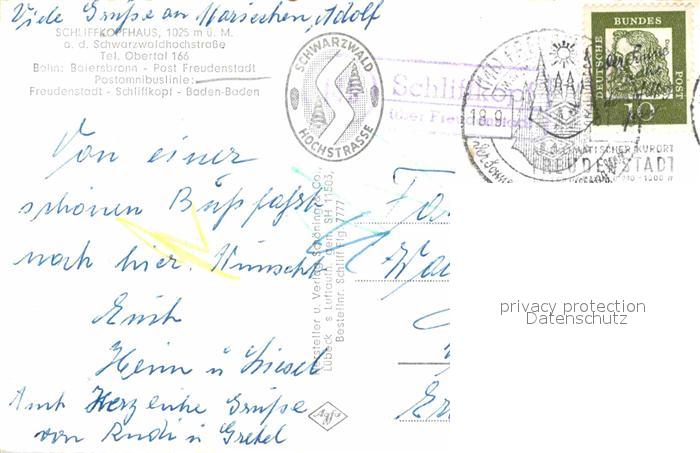 Viele Grüße an Mariechen, Adolf
SCHLIFFKOPFHAUS, 1025 m ü. M.
a. d. Schwarzwaldhochstraße
Tel. Obertal 166
Bahn: Baiersbronn - Post Freudenstadt
Postomnibuslinie:
Freudenstadt - Schliffkopf - Baden-Baden
SCHWARZWALD
HOCHSTRASSE
Schliffkopf
über Freudenstadt
18.9.
KLIMATISCHER KURORT
FREUDENSTADT
DEUTSCHE BUNDESPOST
10
Von einer
schönen Busfahrt
nach hier. Wünscht
Euch
Heini u Liesel
Auch Herzliche Grüße
von Rudi u Gretel
Hersteller u. Verlag Schöning & Co.,
Lübeck s Luftaufn. gen. SH 11503,
Bestellnr. Schliff Flg 7777
Agfa
Fa
Wa
privacy protection
Datenschutz